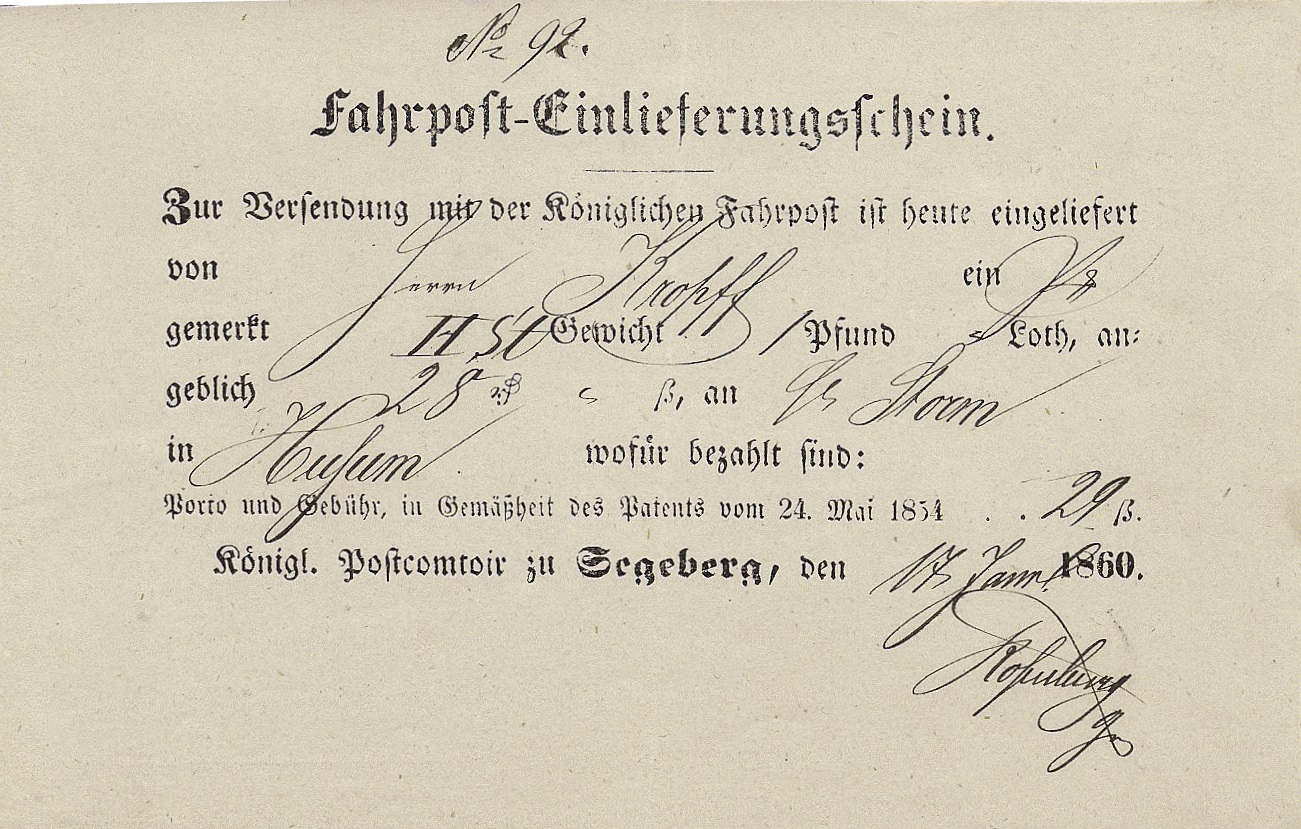 No 92.
Fahrpost-Einlieferungsschein.
Zur Versendung mit der Königlichen Fahrpost ist heute eingeliefert
von Herrn Kropff ein
gemerkt H St Gewicht 1 Pfund " Loth, an-
geblich 28 " ß, an Storm
in Husum wofür bezahlt sind:
Porto und Gebühr, in Gemäßheit des Patents vom 24. Mai 1854 . . 29 ß.
Königl. Postcomtoir zu Segeberg, den 17 Janr 1860.